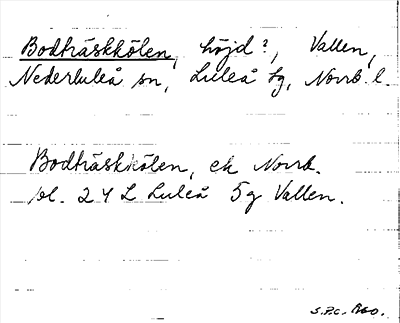 Bodträskkölen, höjd?, Vallen,
Nederluleå sn, Luleå tg, Norrb. l.
Bodträskkölen, ek Norrb.
bl. 24 L Luleå 5g Vallen.
S.P.C.